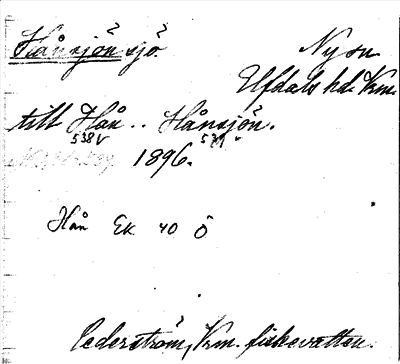 Hånsjön sjö.
Ny sn
Elfdals hd. Krm.
till Hån .. Hånsjön.
538 v 539 v
1896.
Hån Ek 40 Ö
Cederström, Krm. fiskevatten.